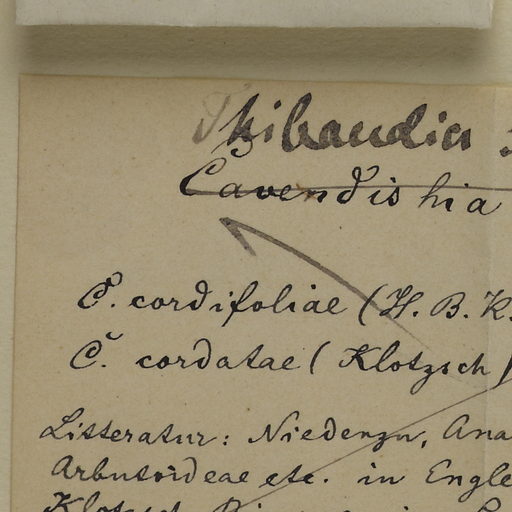 Thibaudia
Cavendishia
C. cordifoliae (H. B. K.
C. cordatae (Klotzsch)
Litteratur: Niedenzu, Ana
Arbutoideae etc. in Engle
Klotzsch